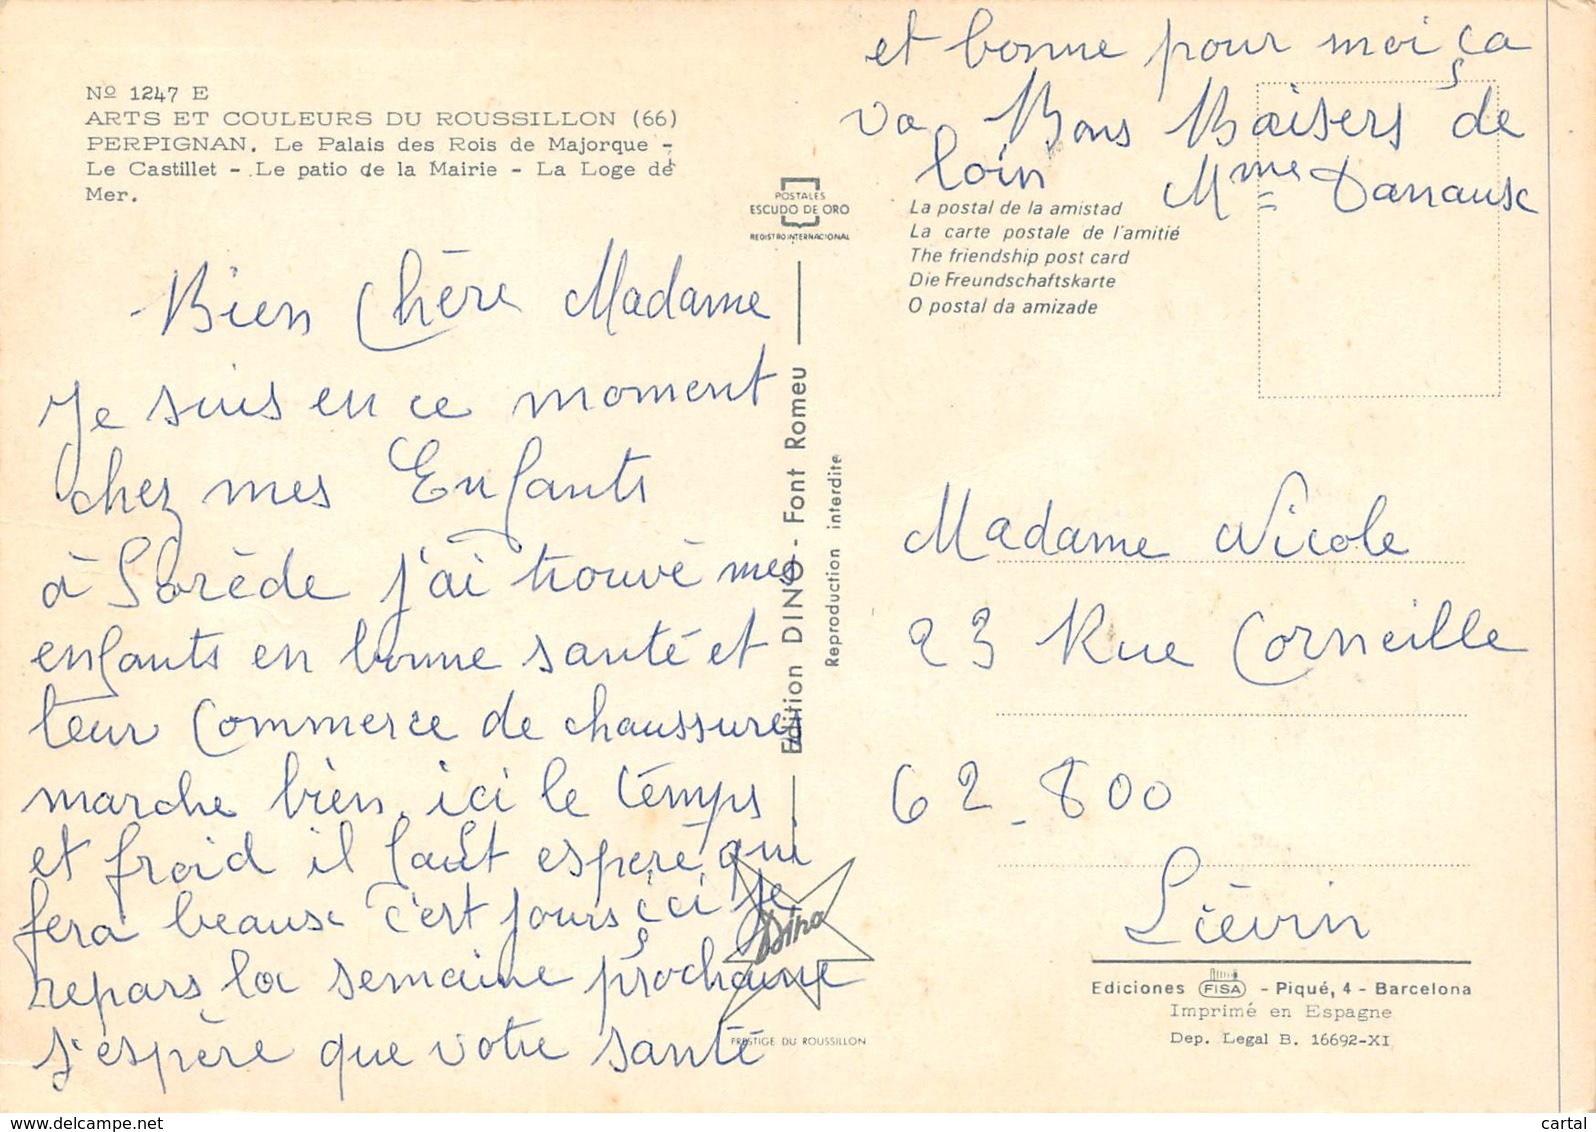 Nº 1247 E
ARTS ET COULEURS DU ROUSSILLON (66)
PERPIGNAN. Le Palais des Rois de Majorque -
Le Castillet - Le patio de la Mairie - La Loge de
Mer.
Bien Chère Madame
Je suis en ce moment
chez mes Enfants
à Sorède j'ai trouvé mes
enfants en bonne santé et
leur Commerce de chaussures
marche bien, ici le temps
et froid il faut esperé qui
fera beaux c'est jours içi je
repars la semaine prochaine
j'espère que votre santé
et bonne pour moi ça
va Bons Baisers de
loin Mme Darraux
POSTALES
ESCUDO DE ORO
REGISTRO INTERNACIONAL
Edition DINO - Font Romeu
Reproduction interdite
Dino
PRESTIGE DU ROUSSILLON
La postal de la amistad
La carte postale de l'amitié
The friendship post card
Die Freundschaftskarte
O postal da amizade
Madame Nicole
23 Rue Corneille
62_800
Liévin
Ediciones FISA - Piqué, 4 - Barcelona
Imprimé en Espagne
Dep. Legal B. 16692-XI
https://www.delcampe.net
cartal